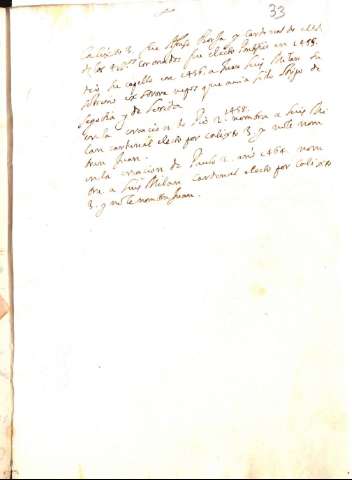 33
Calixto 3. fue Alfonso Borja y Cardenal de
de los 4 coronados fue electo Pontifice en 1455.
dio su capello en 1456. a Juan Luis Milan su
sobrino que avia sido Obispo de
Segorbe y de Lerida
en la creacion de Pio 2. 1458. nombra a Luis Mi
lan cardenal electo por calixto 3. y no le nom
bran Juan.
en la creacion de Paulo 2. año 1464. nom
bra a Luis Milan Cardenal electo por calixto
3. y no le nombra Juan.